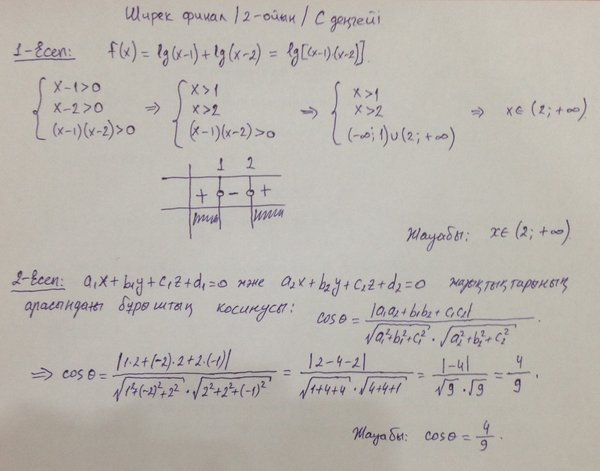 Ширек финал / 2-ойын / С деңгейі
1-Есеп: f(x) = lg(x-1) + lg(x-2) = lg[(x-1)(x-2)].
{ x-1>0 ⇒ { x>1 ⇒ { x>1 ⇒ x∈(2; +∞)
x-2>0 x>2 x>2
(x-1)(x-2)>0 (x-1)(x-2)>0 (-∞; 1)∪(2; +∞)
1 2
+ - +
Жауабы: x∈(2; +∞).
2-Есеп: a₁x+b₁y+c₁z+d₁=0 және a₂x+b₂y+c₂z+d₂=0 жазықтықтарының
арасындағы бұрыштың косинусы: cosθ = |a₁a₂+b₁b₂+c₁c₂| / √(a₁²+b₁²+c₁²) · √(a₂²+b₂²+c₂²)
⇒ cosθ = |1·2+(-2)·2+2·(-1)| / √(1²+(-2)²+2²) · √(2²+2²+(-1)²) = |2-4-2| / √(1+4+4) · √(4+4+1) = |-4| / √9 · √9 = 4/9.
Жауабы: cosθ = 4/9.